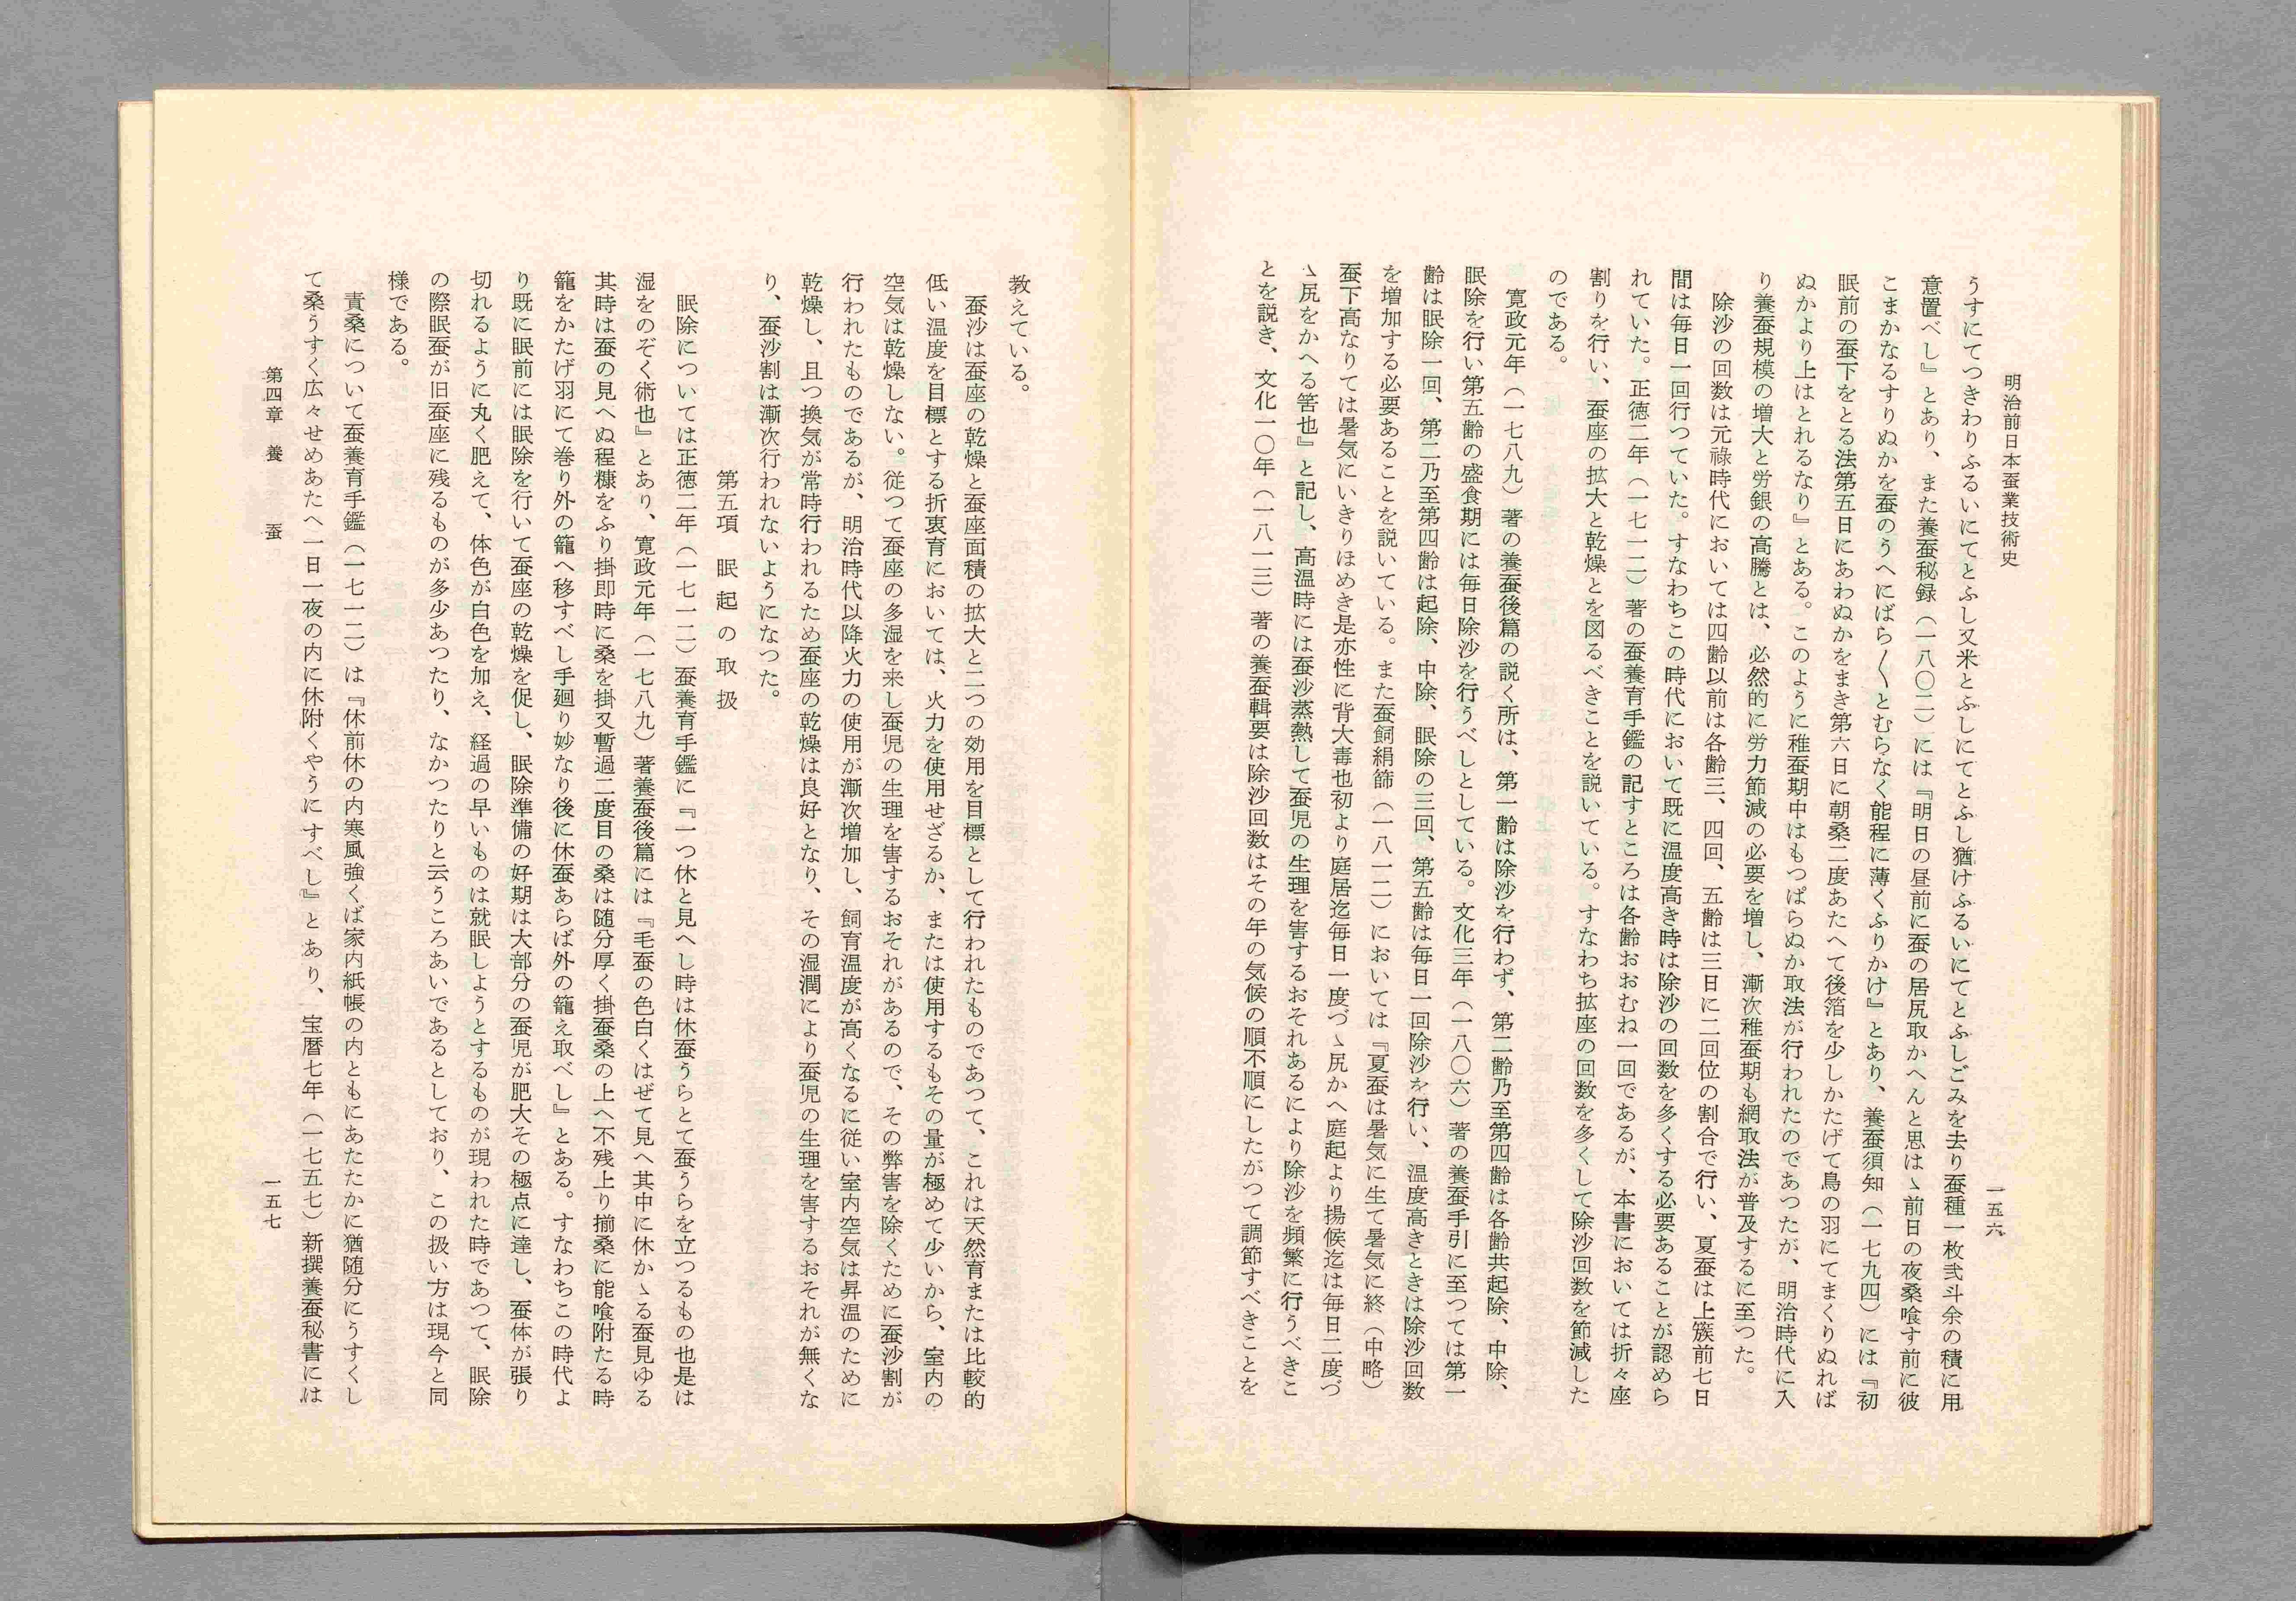 明治前日本蚕業技術史
一五六
うすにてつきわりふるいにてとふし又米とふしにてとふし猶けふるいにてとふしごみを去り蚕種一枚弐斗余の積に用
意置べし』とあり、また養蚕秘録（一八〇二）には『明日の昼前に蚕の居尻取かへんと思はゝ前日の夜桑喰す前に彼
こまかなるすりぬかを蚕のうへにばら〳〵とむらなく能程に薄くふりかけ』とあり、養蚕須知（一七九四）には『初
眠前の蚕下をとる法第五日にあわぬかをまき第六日に朝桑二度あたへて後箔を少しかたげて鳥の羽にてまくりぬれば
ぬかより上はとれるなり』とある。このように稚蚕期中はもつぱらぬか取法が行われたのであつたが、明治時代に入
り養蚕規模の増大と労銀の高騰とは、必然的に労力節減の必要を増し、漸次稚蚕期も網取法が普及するに至つた。
除沙の回数は元祿時代においては四齢以前は各齢三、四回、五齢は三日に二回位の割合で行い、夏蚕は上簇前七日
間は毎日一回行つていた。すなわちこの時代において既に温度高き時は除沙の回数を多くする必要あることが認めら
れていた。正徳二年（一七一二）著の蚕養育手鑑の記すところは各齢おおむね一回であるが、本書においては折々座
割りを行い、蚕座の拡大と乾燥とを図るべきことを説いている。すなわち拡座の回数を多くして除沙回数を節減した
のである。
寛政元年（一七八九）著の養蚕後篇の説く所は、第一齢は除沙を行わず、第二齢乃至第四齢は各齢共起除、中除、
眠除を行い第五齢の盛食期には毎日除沙を行うべしとしている。文化三年（一八〇六）著の養蚕手引に至つては第一
齢は眠除一回、第二乃至第四齢は起除、中除、眠除の三回、第五齢は毎日一回除沙を行い、温度高きときは除沙回数
を増加する必要あることを説いている。また蚕飼絹篩（一八一二）においては『夏蚕は暑気に生て暑気に終（中略）
蚕下高なりては暑気にいきりほめき是亦性に背大毒也初より庭居迄毎日一度づゝ尻かへ庭起より揚候迄は毎日二度づ
ゝ尻をかへる筈也』と記し、高温時には蚕沙蒸熱して蚕児の生理を害するおそれあるにより除沙を頻繁に行うべきこ
とを説き、文化一〇年（一八一三）著の養蚕輯要は除沙回数はその年の気候の順不順にしたがつて調節すべきことを
教えている。
蚕沙は蚕座の乾燥と蚕座面積の拡大と二つの効用を目標として行われたものであつて、これは天然育または比較的
低い温度を目標とする折衷育においては、火力を使用せざるか、または使用するもその量が極めて少いから、室内の
空気は乾燥しない。従つて蚕座の多湿を来し蚕児の生理を害するおそれがあるので、その弊害を除くために蚕沙割が
行われたものであるが、明治時代以降火力の使用が漸次増加し、飼育温度が高くなるに従い室内空気は昇温のために
乾燥し、且つ換気が常時行われるため蚕座の乾燥は良好となり、その湿潤により蚕児の生理を害するおそれが無くな
り、蚕沙割は漸次行われないようになつた。
第五項　眠起の取扱
眠除については正徳二年（一七一二）蚕養育手鑑に『一つ休と見へし時は休蚕うらとて蚕うらを立つるもの也是は
湿をのぞく術也』とあり、寛政元年（一七八九）著養蚕後篇には『毛蚕の色白くはぜて見へ其中に休かゝる蚕見ゆる
其時は蚕の見へぬ程糠をふり掛即時に桑を掛又暫過二度目の桑は随分厚く掛蚕桑の上へ不残上り揃桑に能喰附たる時
籠をかたげ羽にて巻り外の籠へ移すべし手廻り妙なり後に休蚕あらば外の籠え取べし』とある。すなわちこの時代よ
り既に眠前には眠除を行いて蚕座の乾燥を促し、眠除準備の好期は大部分の蚕児が肥大その極点に達し、蚕体が張り
切れるように丸く肥えて、体色が白色を加え、経過の早いものは就眠しようとするものが現われた時であつて、眠除
の際眠蚕が旧蚕座に残るものが多少あつたり、なかつたりと云うころあいであるとしており、この扱い方は現今と同
様である。
責桑について蚕養育手鑑（一七一二）は『休前休の内寒風強くば家内紙帳の内ともにあたたかに猶随分にうすくし
て桑うすく広々せめあたへ一日一夜の内に休附くやうにすべし』とあり、宝暦七年（一七五七）新撰養蚕秘書には
第四章　養　蚕
一五七